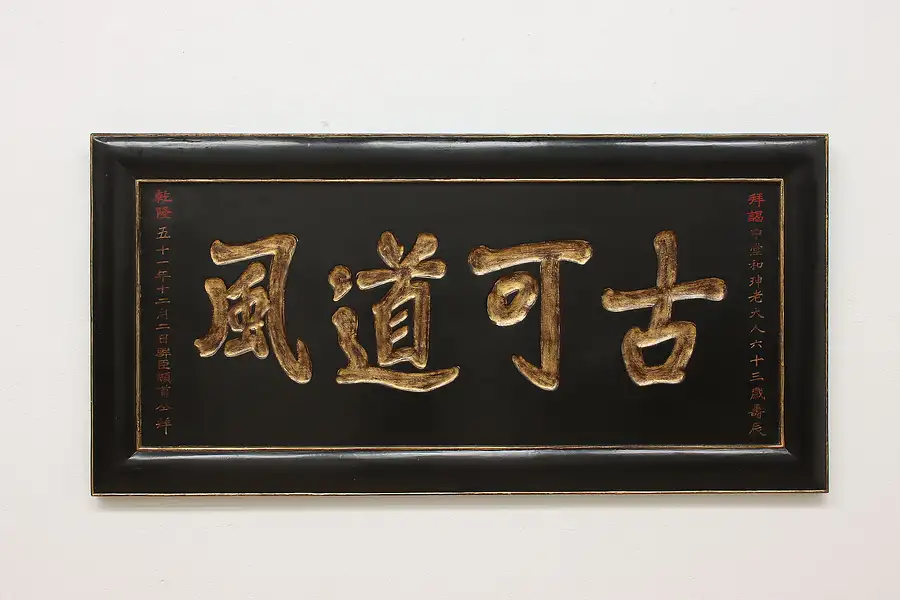 拜謁中堂和珅老大人六十三歲壽辰
古可道風
乾隆五十一年十二月二日群臣頓首公拜